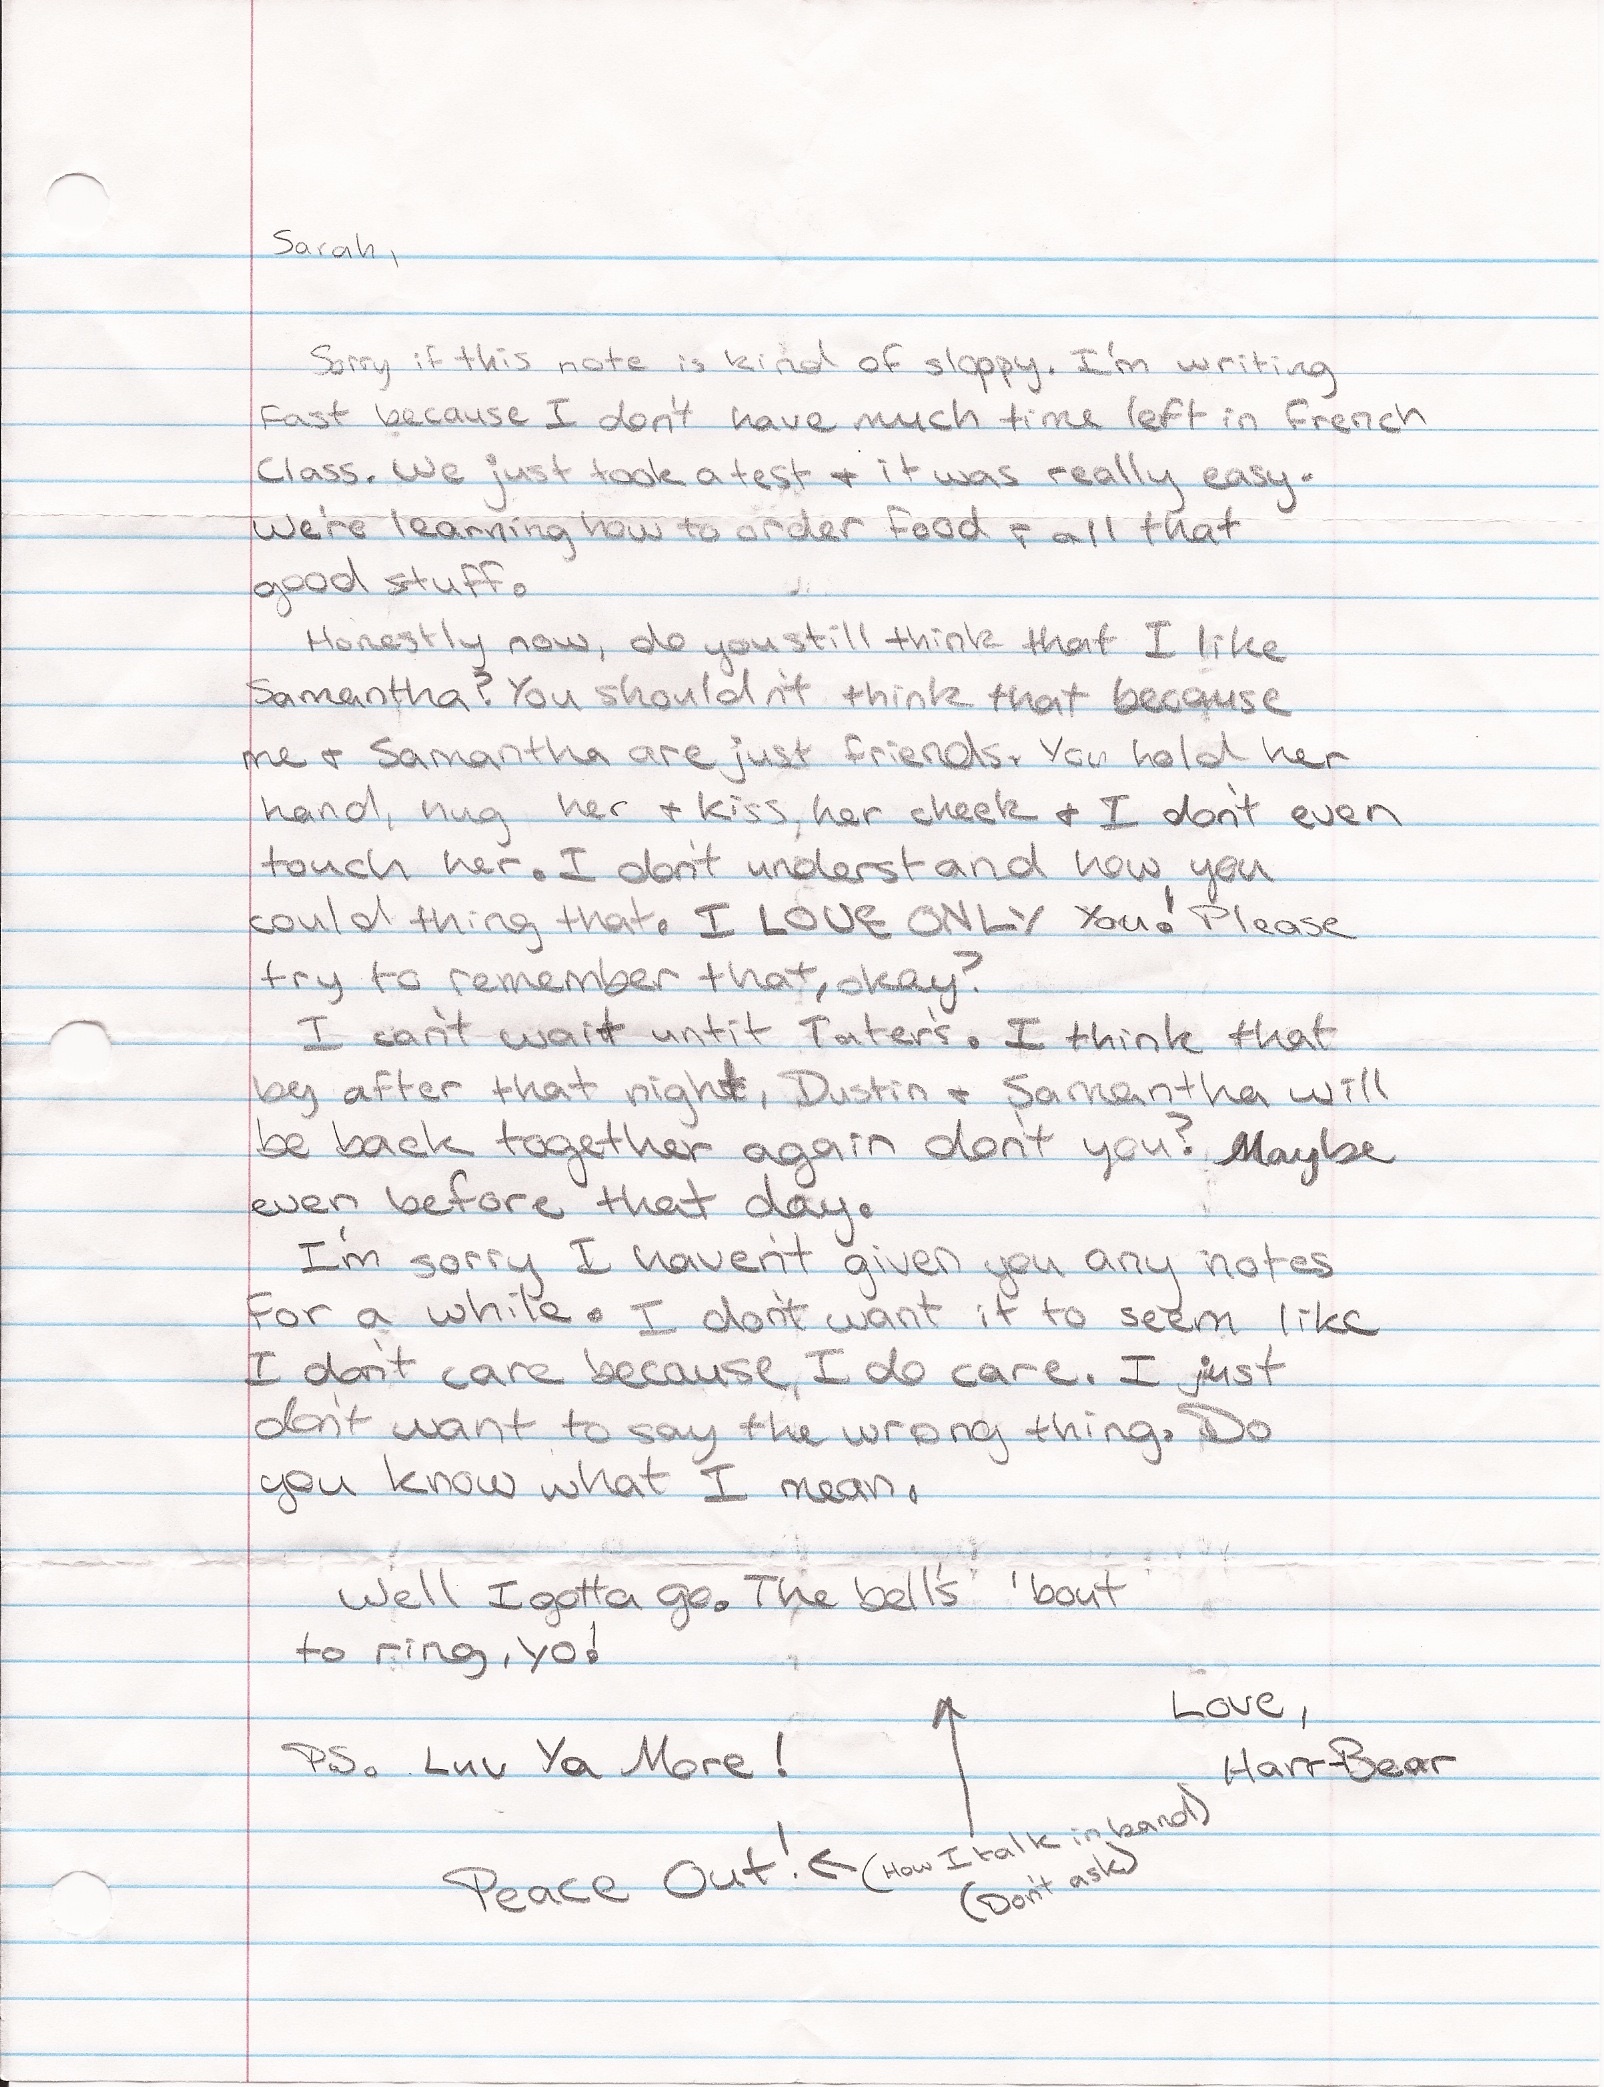 Sarah,
Sorry if this note is kind of sloppy. I'm writing
Fast because I don't have much time left in French
Class. We just took a test & it was really easy.
We're learning how to order food & all that
good stuff.
Honestly now, do you still think that I like
Samantha? You shouldn't think that because
me & Samantha are just friends. You hold her
hand, hug her & kiss, her cheek & I don't even
touch her. I don't understand how you
could thing that. I LOVE ONLY You! Please
try to remember that, okay?
I can't wait until Tater's. I think that
by after that night, Dustin & Samantha will
be back together again don't you? Maybe
even before that day.
I'm sorry I haven't given you any notes
For a while. I don't want it to seem like
I don't care because, I do care. I just
don't want to say the wrong thing. Do
you know what I mean.
Well I gotta go. The bell's 'bout
to ring, yo!
Love,
P.S. Luv Ya More!
Harr-Bear
Peace Out! ← (How I talk in band)
(Don't ask)